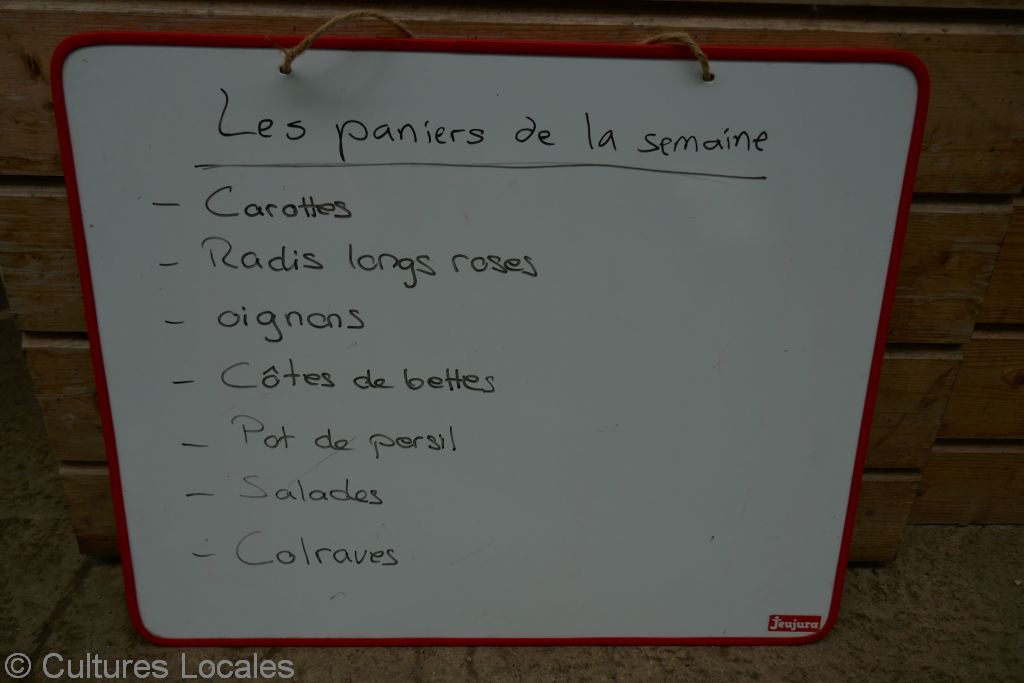 Les paniers de la semaine
- Carottes
- Radis longs roses
- oignons
- Côtes de bettes
- Pot de persil
- Salades
- Colraves
Jeujura
© Cultures Locales